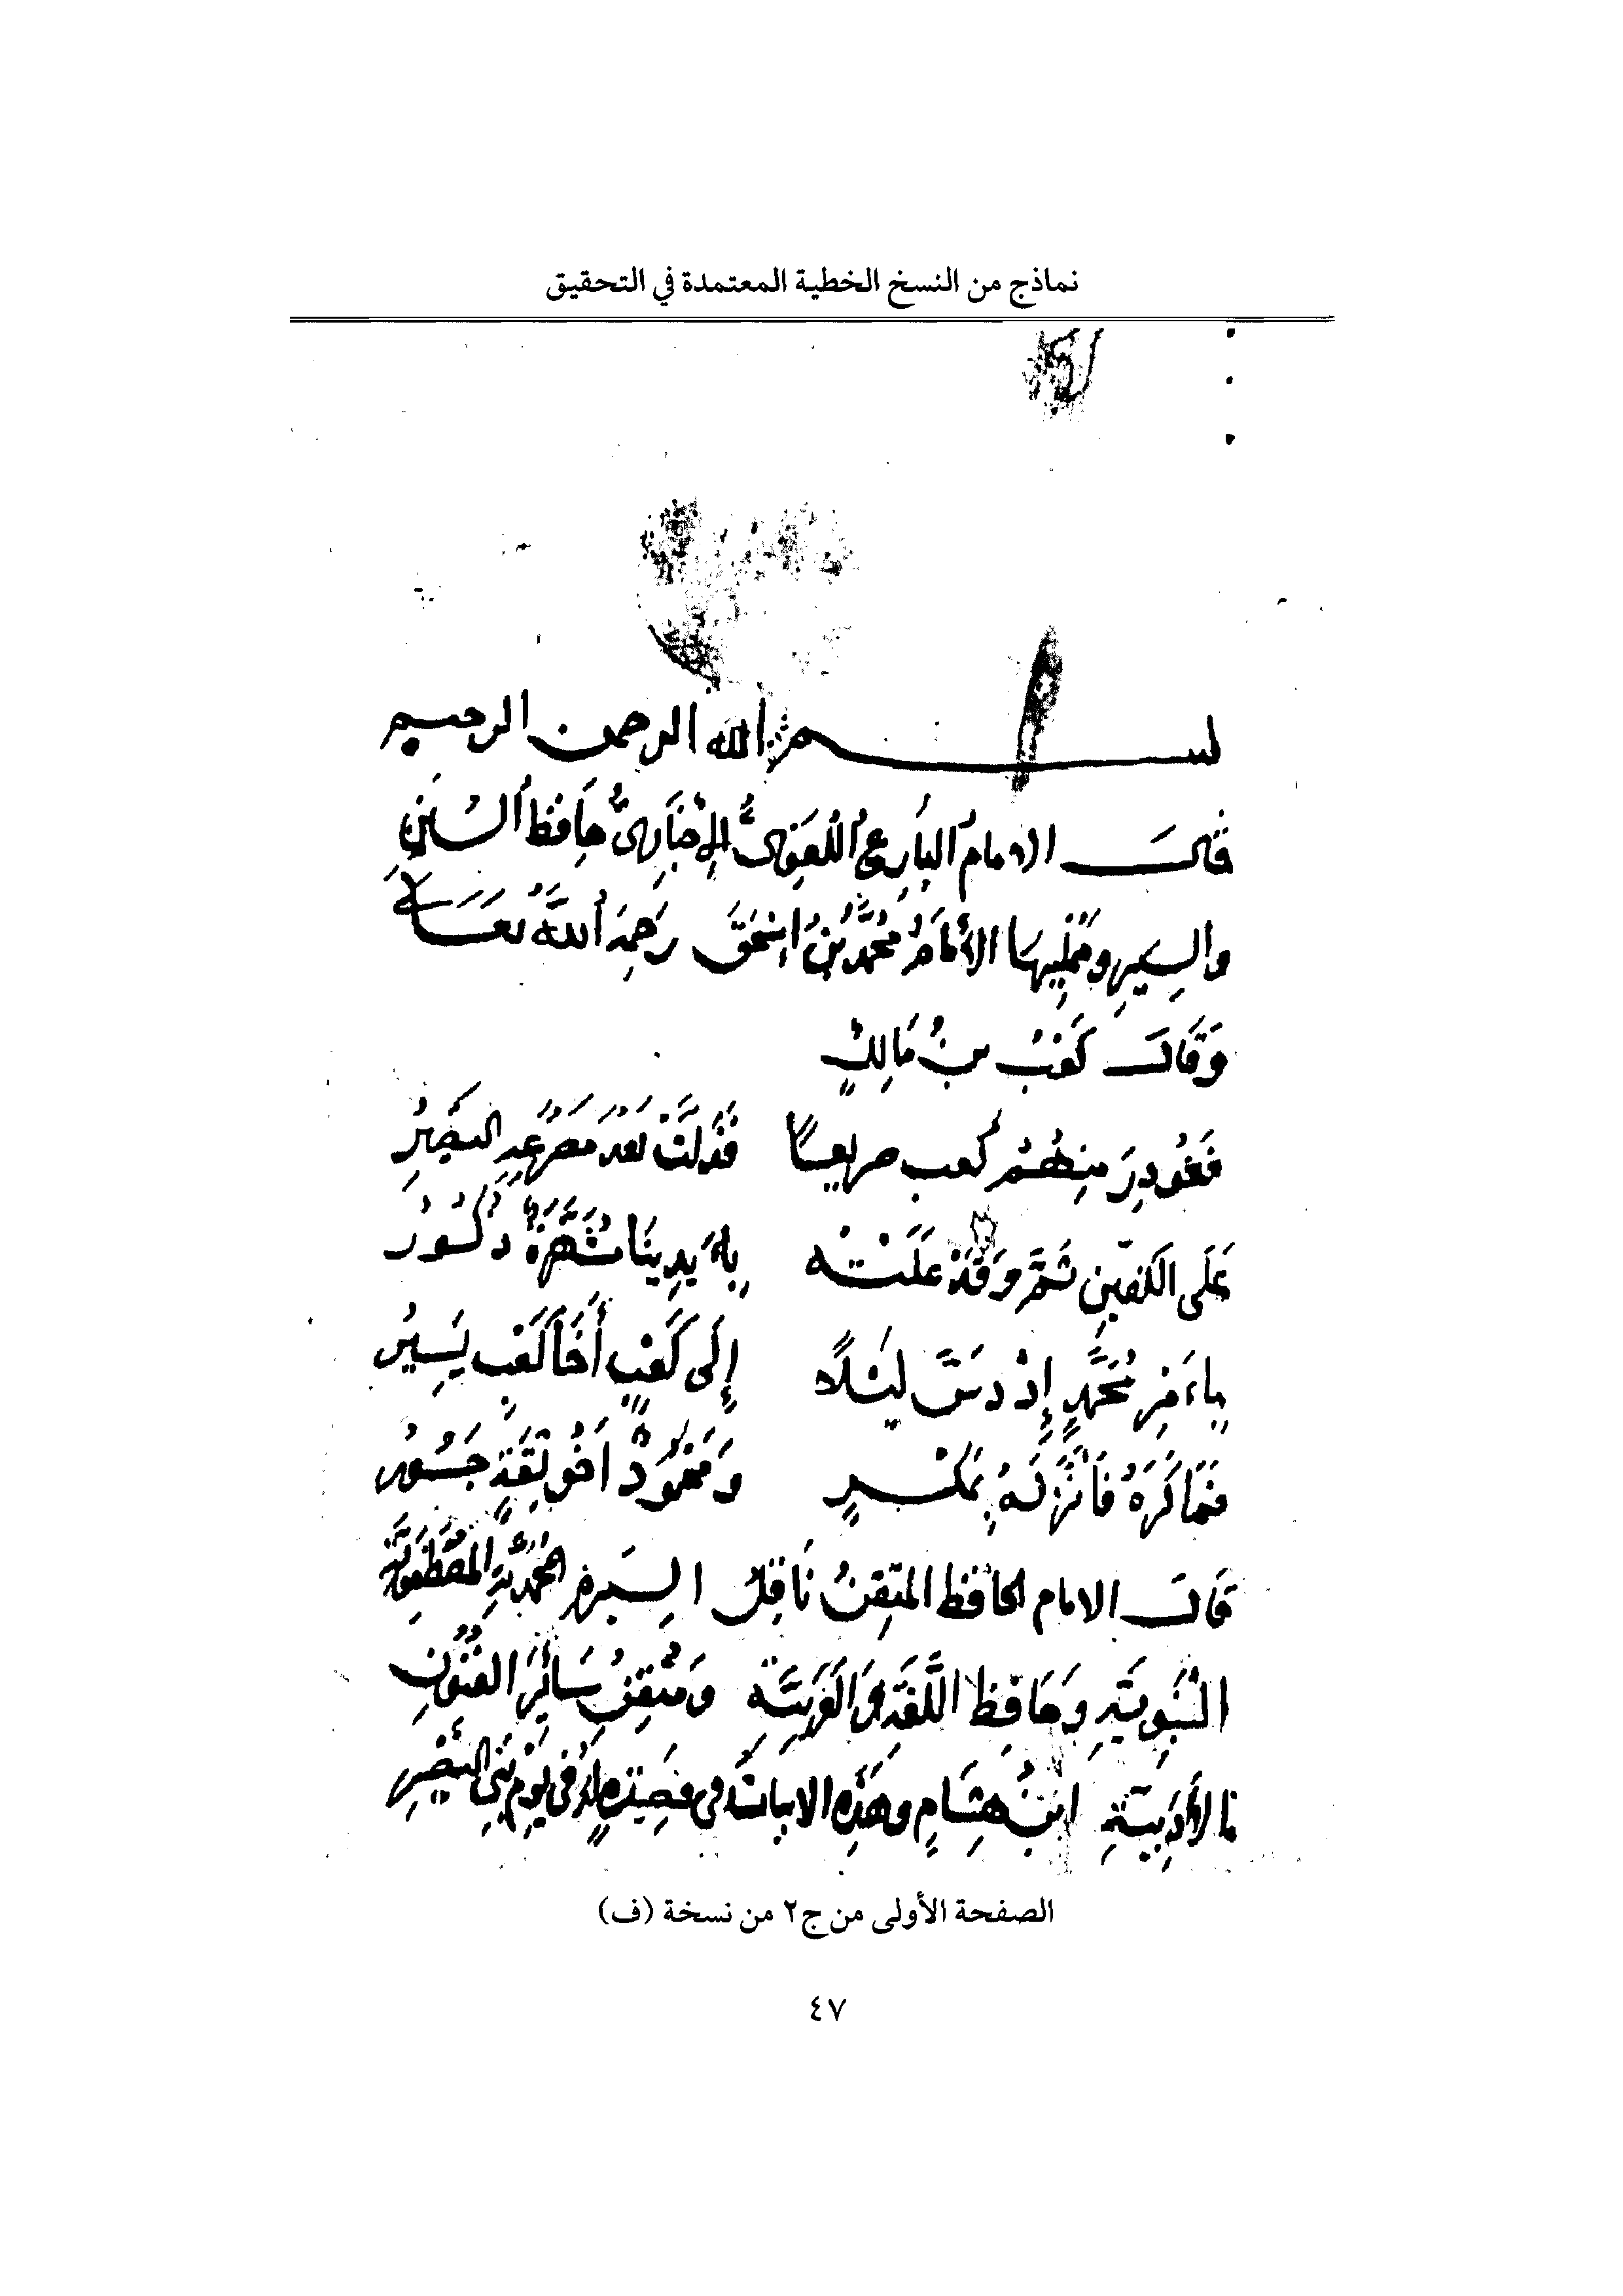 نماذج من النسخ الخطية المعتمدة في التحقيق
بسم الله الرحمن الرحيم
قَالَ الامامُ البَارِعُ اللُّغَوِيُّ الإِخْبَارِيُّ حَافِظُ السُّنَنِ
والسِّيَرِ ومُمْلِيهَا الأمَامُ مُحَمَّدُ بْنُ اِسْحَقَ رَحِمَهُ اللهُ تَعَالَى
وَقَالَ كَعْبُ بنُ مَالِكٍ
فَغُودِرَ مِنْهُمُ كعب صريعًا فَذَلَّتْ بَعْدَ مَصْرَعِهِ النَّضِيرُ
عَلَى الكَفَّينِ ثَمَّ وَقَدْ عَلَتْهُ بِاَيْدِينَا مُشَهَّرَةٌ ذُكُورُ
بِاَمْرِ مُحَمَّدٍ إِذْ دَسَّ لَيْلاً إِلَى كَعْبٍ أَخَا كَعْبٍ يَسِيرُ
فَمَاكَرَهُ فَاَنْزَلَهُ بِمَكْرٍ وَمَحْمُودٌ اَخُو ثِقَةٍ جَسُورُ
قَالَ الامام الحافظ المتقِنُ نَاقِلُ السِّيرةِ المُحَمَّدِيَّةِ المُصْطَفَوِيَّةِ
النَّبَوِيَّةِ وَحَافِظُ اللُّغَةِ وَالعَرَبِيَّةِ وَمُتْقِنُ سَائِرَ الفُنُونِ
الأَدَبِيَّةِ ابنُ هِشَامٍ وهَذِهِ الابياتُ فى قصِيدةٍ لهُ فى يَوْمِ بَنِى النَّضِيرِ
الصفحة الأولى من ج٢ من نسخة (ف)
٤٧